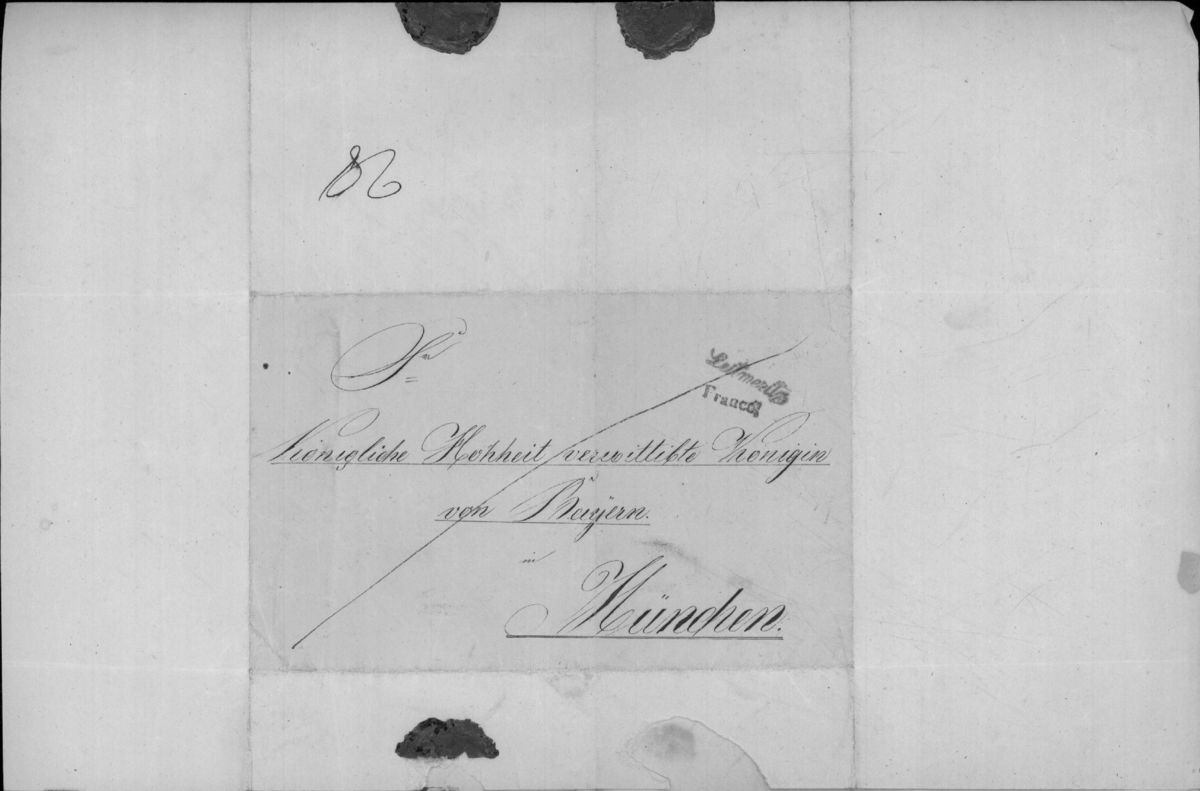 Sr
Leitmeritz
Franco
Königliche Hohheit verwittibte Königin
von Bayern.
in
München.